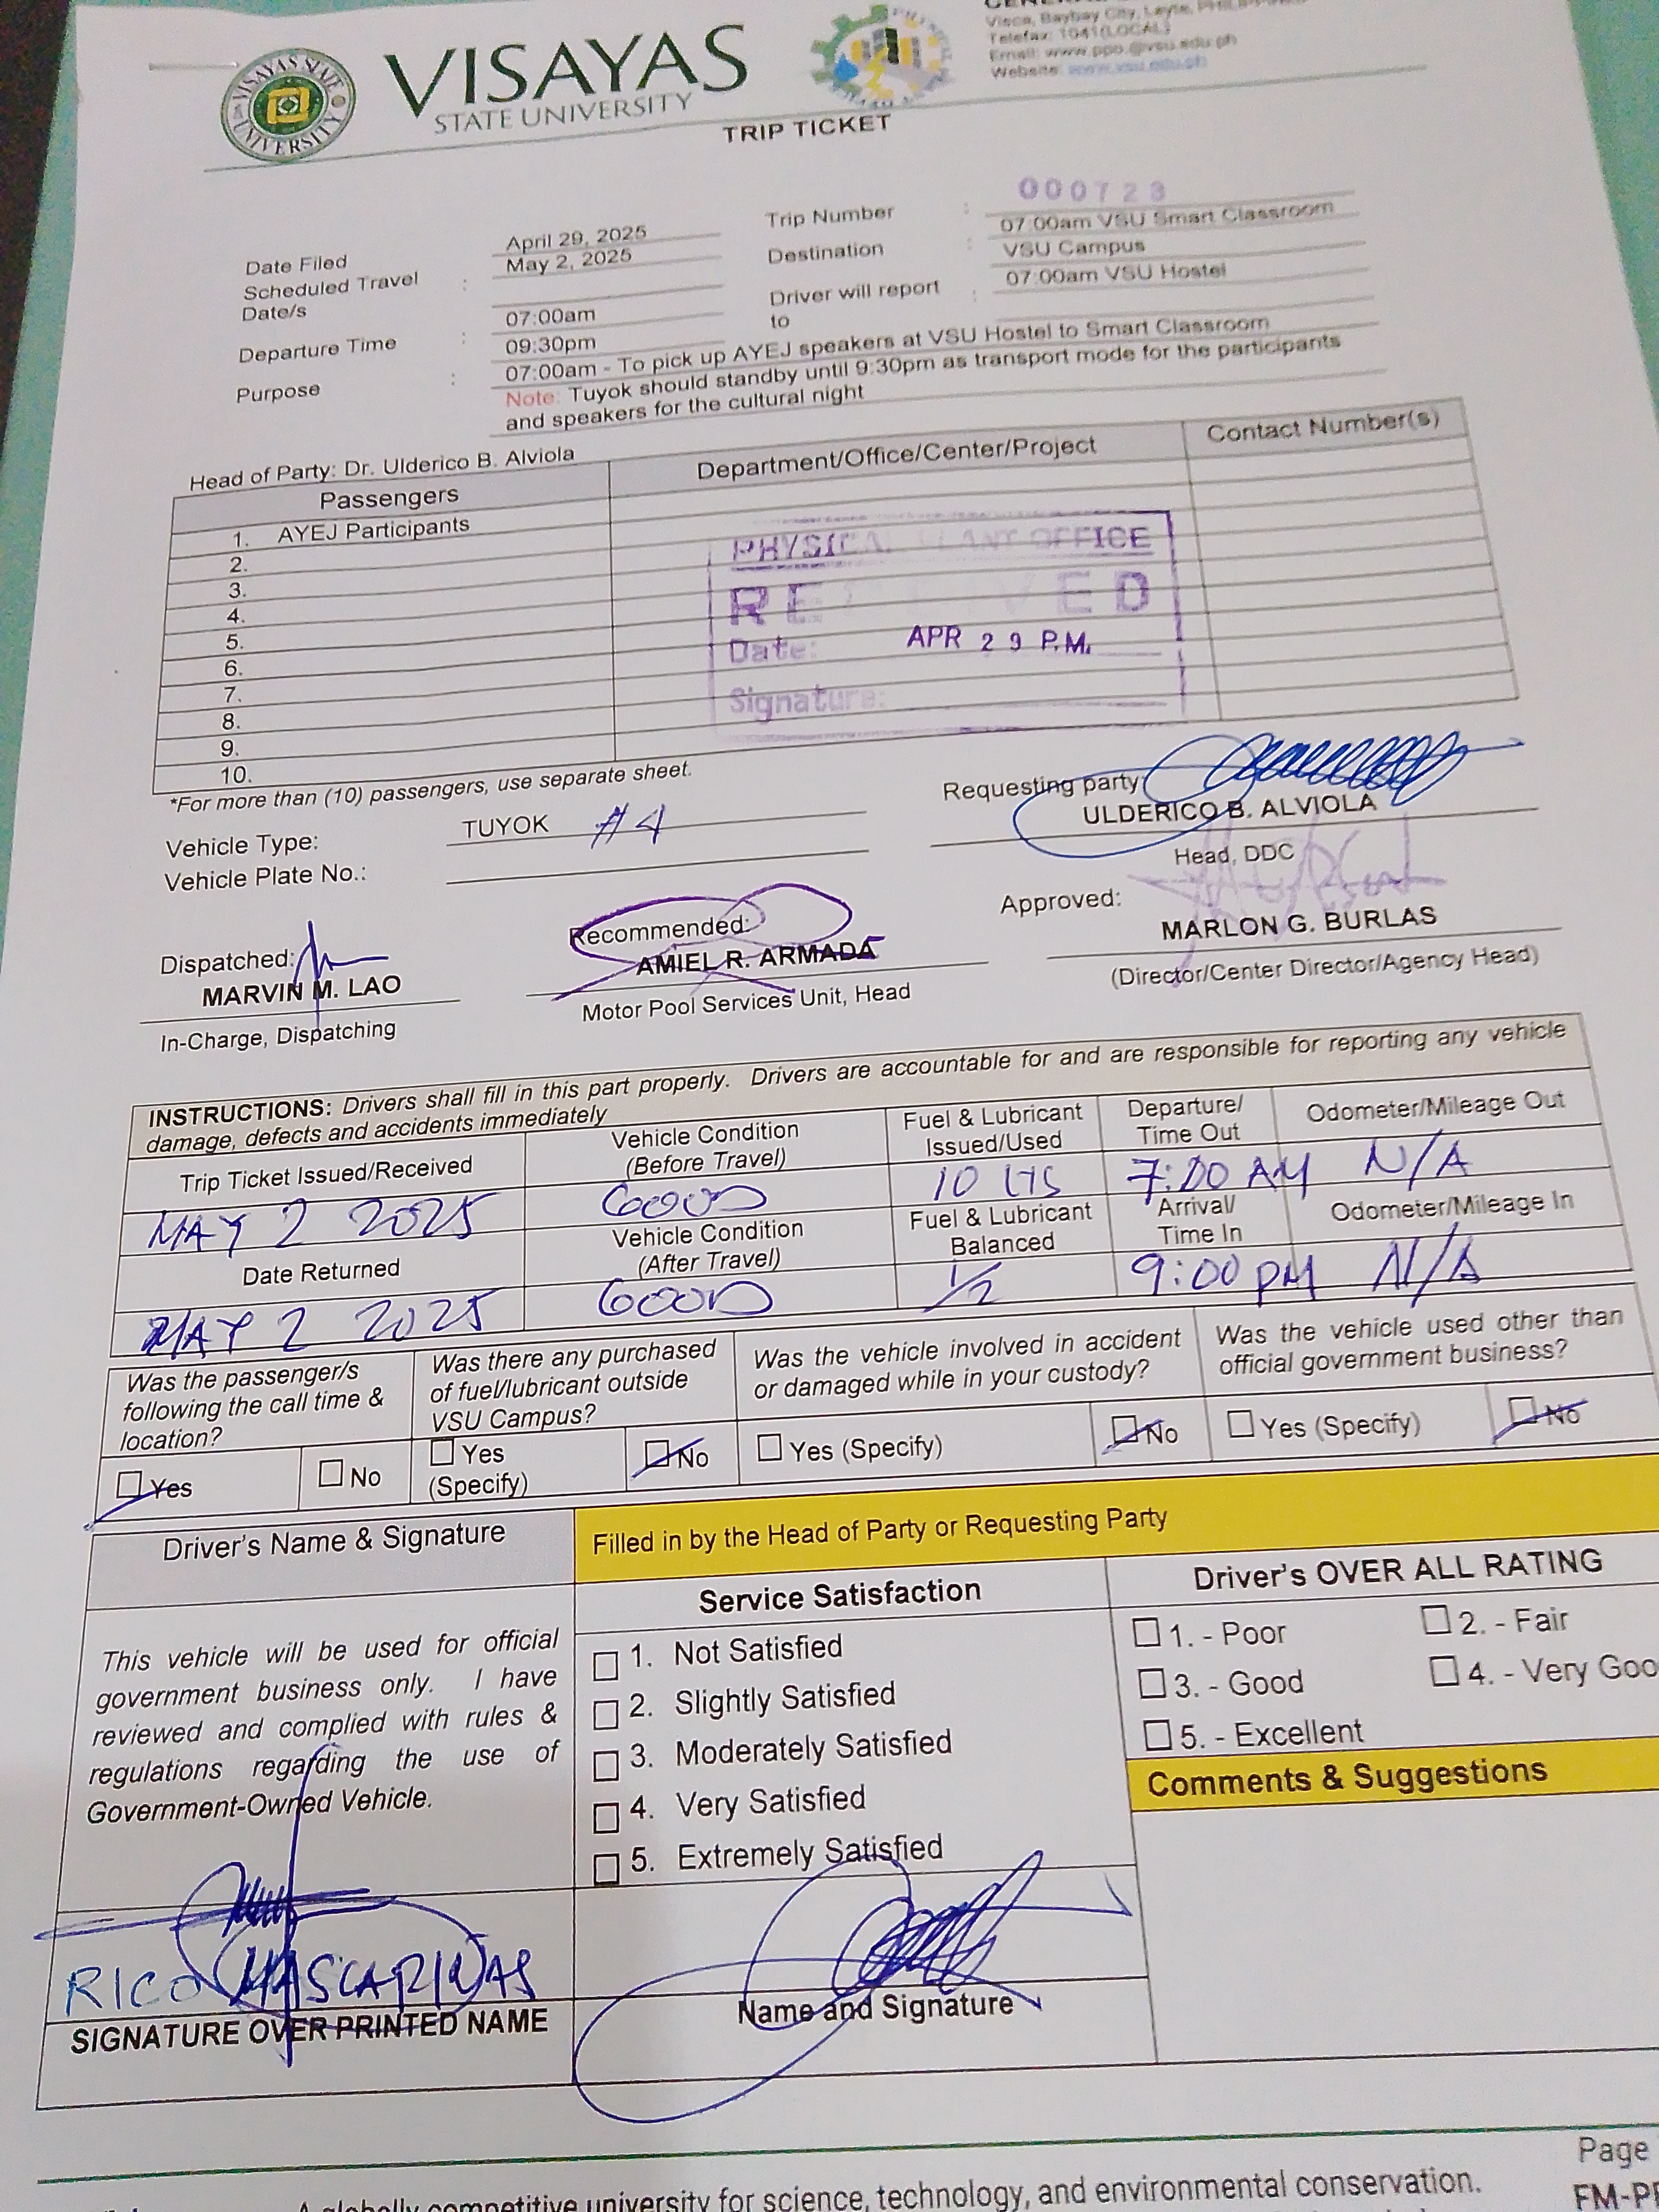 VISAYAS STATE UNIVERSITY
VISAYAS
STATE UNIVERSITY
Visca, Baybay City, Leyte, PHILIPPINES
Telefax: 1041(LOCAL)
Email: www.ppo.@vsu.edu.ph
Website: www.vsu.edu.ph
TRIP TICKET
Date Filed April 29, 2025
Scheduled Travel Date/s : May 2, 2025
Departure Time : 07:00am
09:30pm
Trip Number : 000723
07:00am VSU Smart Classroom
Destination : VSU Campus
Driver will report to : 07:00am VSU Hostel
Purpose : 07:00am - To pick up AYEJ speakers at VSU Hostel to Smart Classroom
Note: Tuyok should standby until 9:30pm as transport mode for the participants
and speakers for the cultural night
Head of Party: Dr. Ulderico B. Alviola
Passengers Department/Office/Center/Project Contact Number(s)
1. AYEJ Participants
2.
3.
4.
5.
6.
7.
8.
9.
10.
PHYSICAL PLANT OFFICE
RECEIVED
Date: APR 29 P.M.
Signature:
*For more than (10) passengers, use separate sheet.
Vehicle Type: TUYOK #4
Vehicle Plate No.:
Requesting party:
ULDERICO B. ALVIOLA
Head, DDC
Dispatched:
MARVIN M. LAO
In-Charge, Dispatching
Recommended:
AMIEL R. ARMADA
Motor Pool Services Unit, Head
Approved:
MARLON G. BURLAS
(Director/Center Director/Agency Head)
INSTRUCTIONS: Drivers shall fill in this part properly. Drivers are accountable for and are responsible for reporting any vehicle
damage, defects and accidents immediately
Trip Ticket Issued/Received
MAY 2 2025
Vehicle Condition
(Before Travel)
GOOD
Fuel & Lubricant
Issued/Used
10 LTS
Departure/
Time Out
7:00 AM
Odometer/Mileage Out
N/A
Date Returned
MAY 2 2025
Vehicle Condition
(After Travel)
GOOD
Fuel & Lubricant
Balanced
1/2
Arrival/
Time In
9:00 PM
Odometer/Mileage In
N/A
Was the passenger/s
following the call time &
location?
Yes No
Was there any purchased
of fuel/lubricant outside
VSU Campus?
Yes
(Specify)
No
Was the vehicle involved in accident
or damaged while in your custody?
Yes (Specify) No
Was the vehicle used other than
official government business?
Yes (Specify) No
Driver's Name & Signature
This vehicle will be used for official
government business only. I have
reviewed and complied with rules &
regulations regarding the use of
Government-Owned Vehicle.
RICO MASCARINAS
SIGNATURE OVER PRINTED NAME
Filled in by the Head of Party or Requesting Party
Service Satisfaction
1. Not Satisfied
2. Slightly Satisfied
3. Moderately Satisfied
4. Very Satisfied
5. Extremely Satisfied
Name and Signature
Driver's OVER ALL RATING
1. - Poor 2. - Fair
3. - Good 4. - Very Goo
5. - Excellent
Comments & Suggestions
A globally competitive university for science, technology, and environmental conservation.
Page